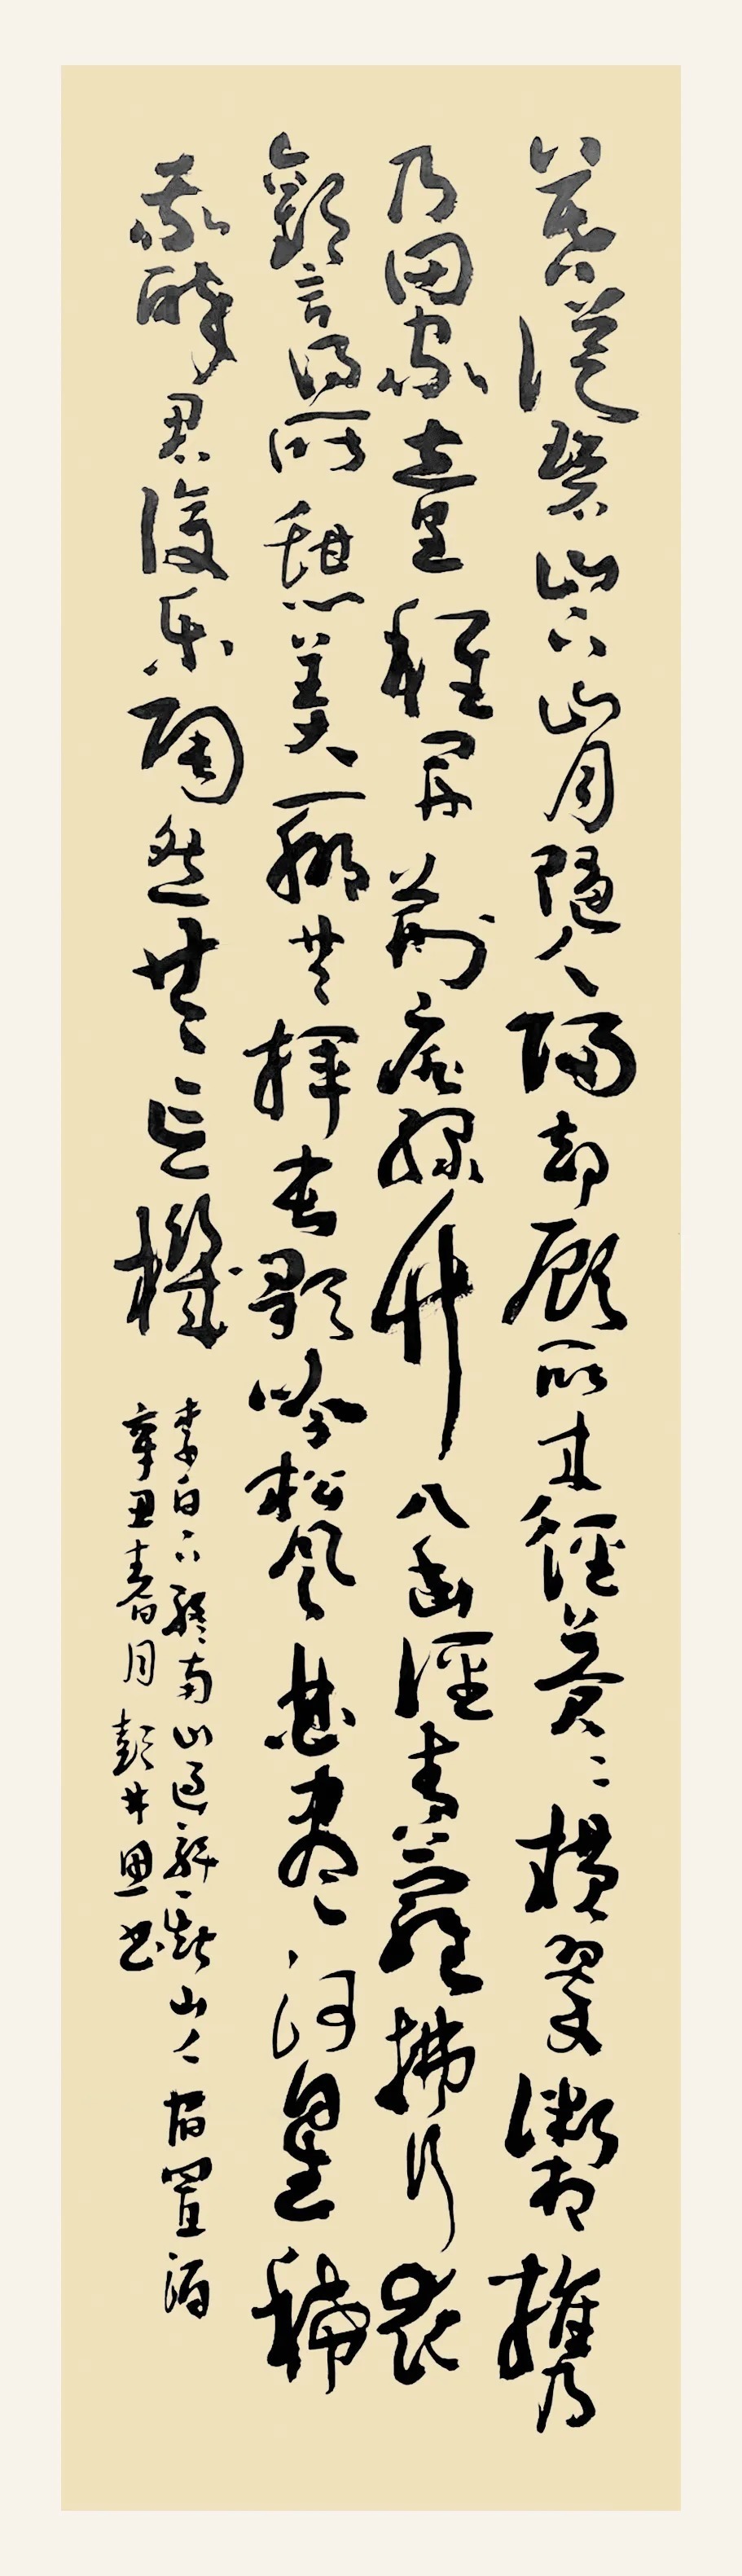 暮從碧山下山月隨人歸却顧所來徑蒼々橫翠微相攜
及田家童稚開荊扉綠竹入幽徑青蘿拂行衣
歡言得所憩美聊共揮長歌吟松風曲盡河星稀
我醉君復樂陶然共忘機
李白下終南山過斛斯山人宿置酒
辛丑春月彭书